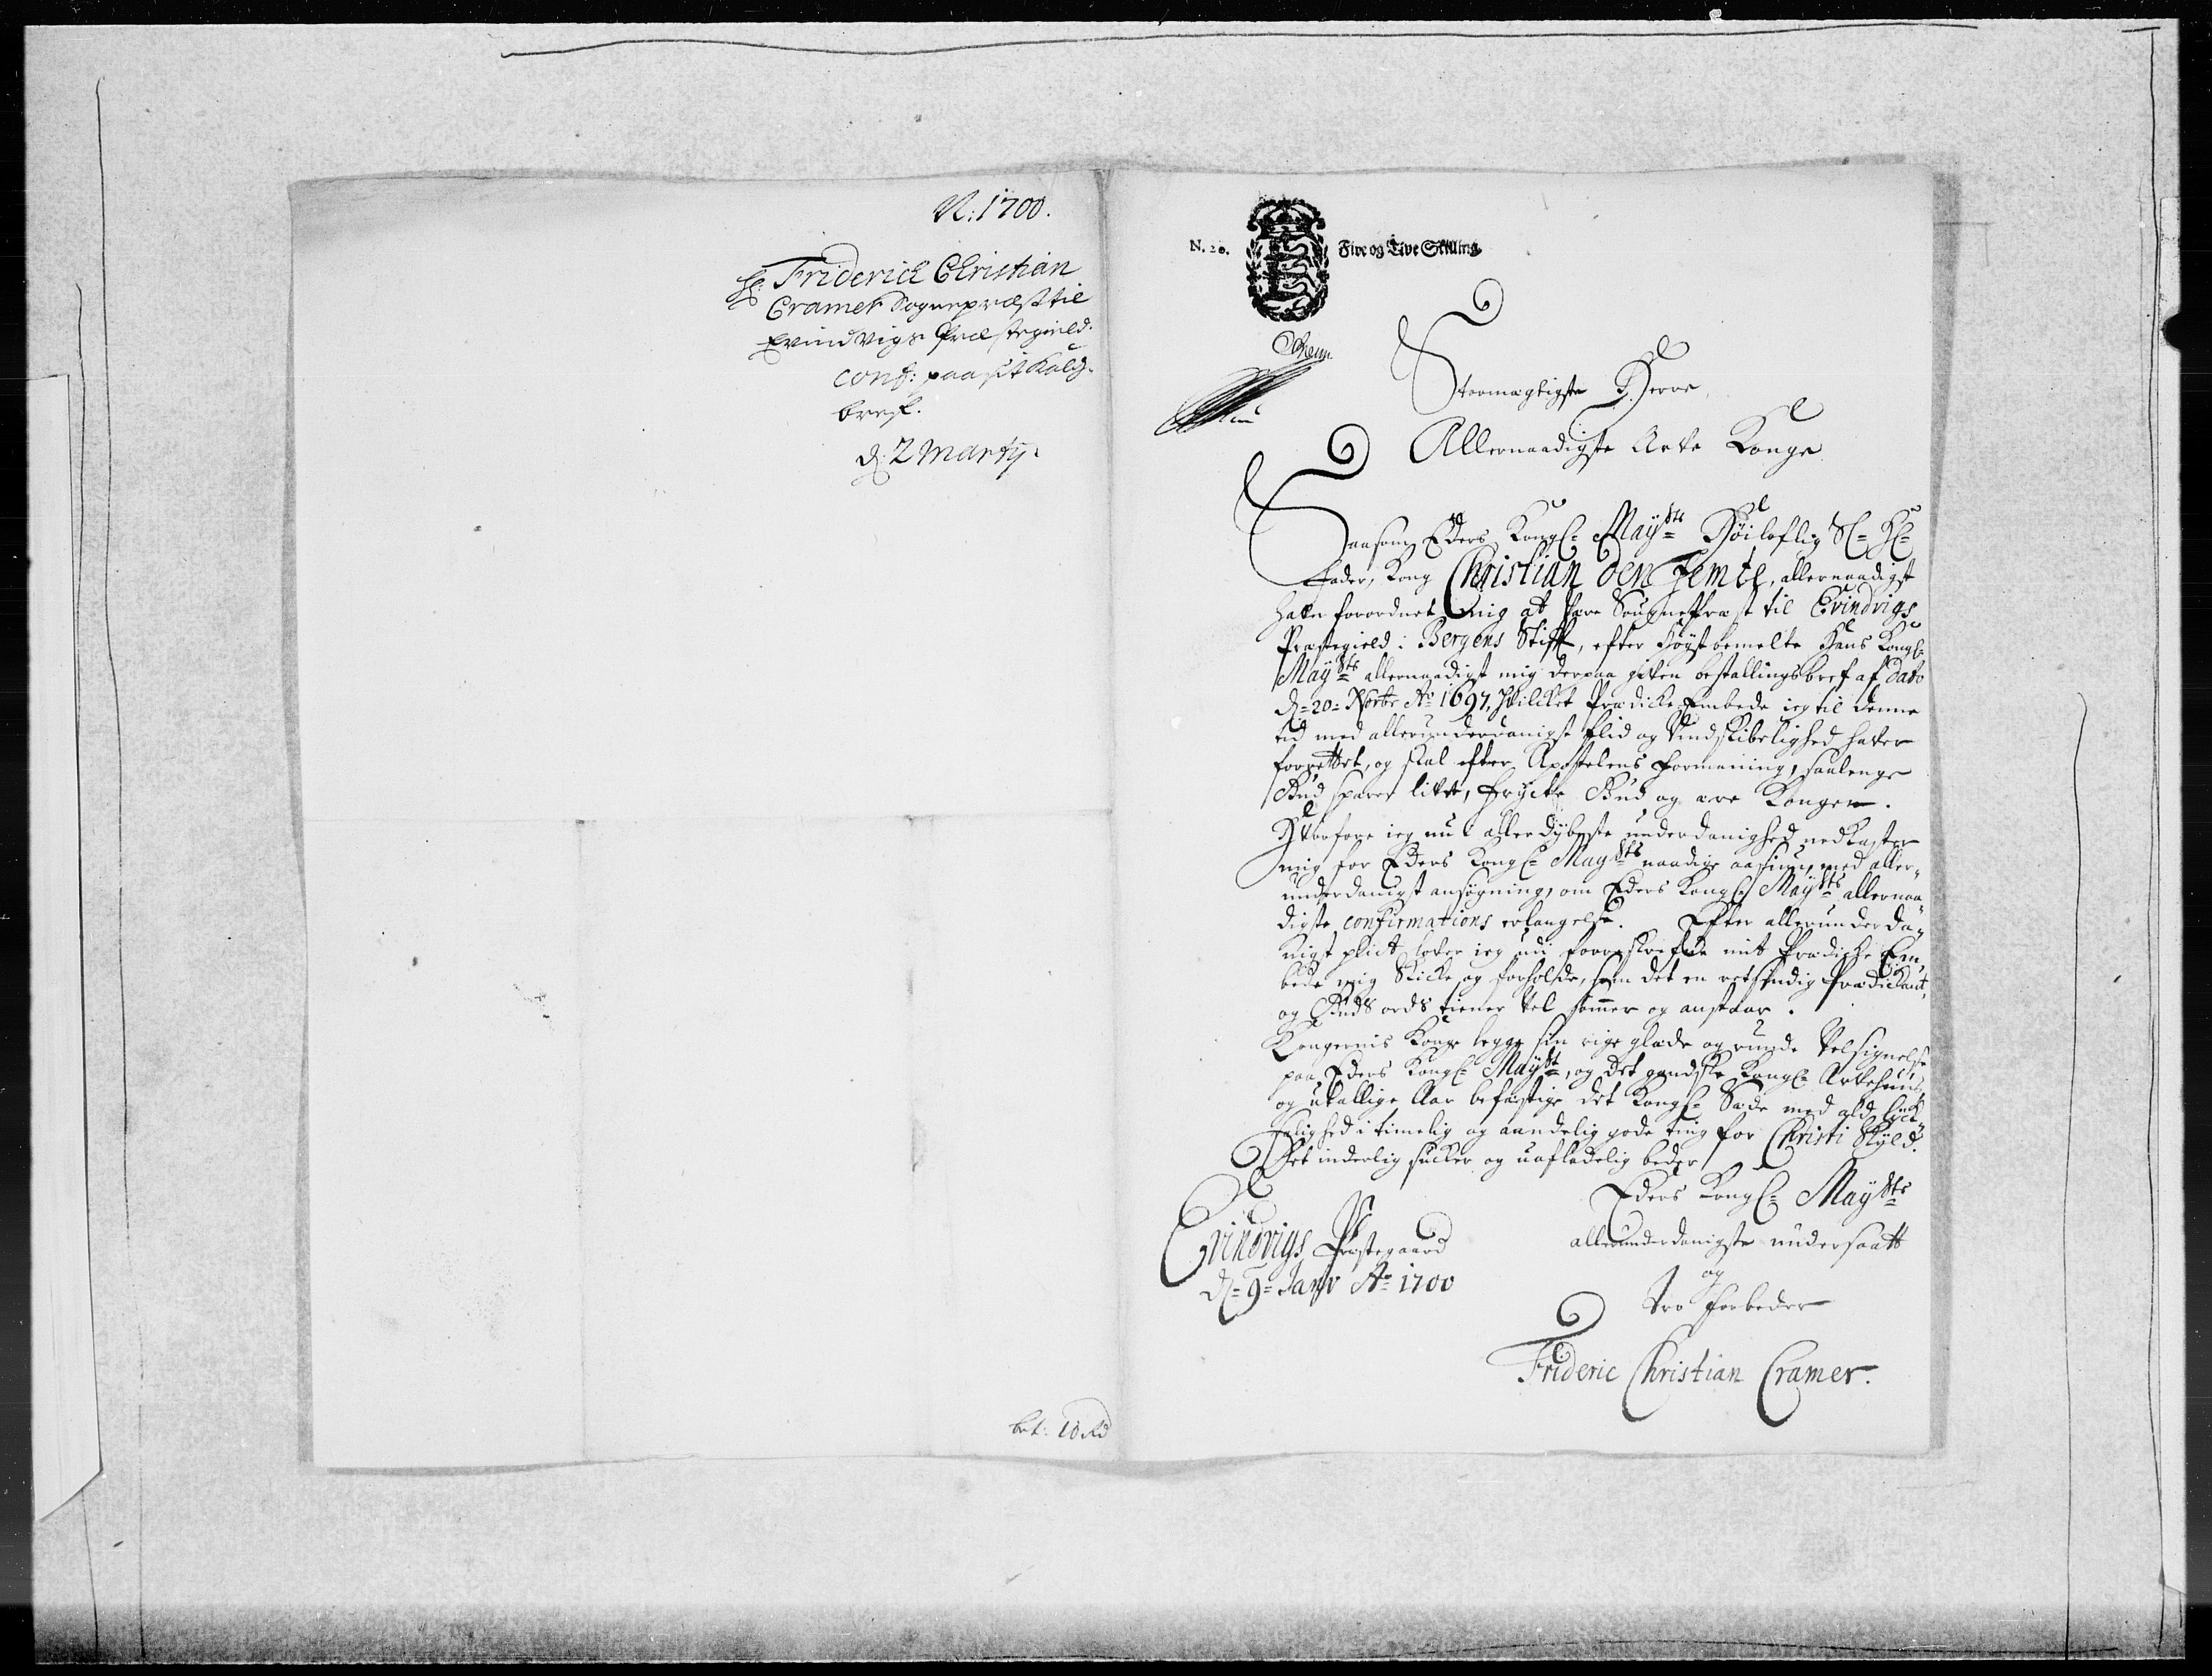 N: 1700.
Hr: Friderich Christian
Cramer Sognepræst til
Evindvigs Præstegield.
conf: paa sit Kald-
bref.
d. 2 Martij.
bet: 10 Rd
N. 20.
Fire og Tive Skilling
Stormægtigste Herre,
Allernaadigste Arve Konge
Saasom Eders Kongl: Mayts Høiloflig Sl: H:
Fader, Kong Christian den Femte, allernaadigst
hafver forordnet mig at være Sougnepræst til Evindvigs
Præstegield i Bergens Stift, efter Høystbemelte Hans Kongl:
Mayts allernaadigst mig derpaa gifven bestallingsbref af dato
d. 20 Novbr Ao 1697, Hvilcket Prædicke Embede ieg til denne
tid med allerunderdanigst flid og Vindskibelighed hafver
forrettet, og skal efter Apostelens formaning, saalenge
Gud sparer livet, frycte Gud og ære Kongen.
Hvorfore ieg nu i allerdybeste underdanighed nedkaster
mig for Eders Kongl: Mayts naadige aasiun, med aller-
underdanigst ansøgning, om Eders Kongl: Mayts allernaa-
digste confirmations erlangelse. Efter allerunderda-
nigst plict lover ieg udi forreskrefne mit Prædicke Em-
bede mig skicke og forholde, som det en retsindig Prædicant,
og Guds ords tiener vel sømmer og anstaar.
Kongernis Konge legge sin rige glæde og runde Velsignelse
paa Eders Kongl: Mayt, og det gandske Kongl: Arvehuus,
og utallige Aar befæstige det Kongl: Sæde med ald lyck-
salighed i timelig og aandelig gode ting for Christi Skyld.
Det inderlig sucker og uafladelig beder
Eders Kongl: Mayts
allerunderdanigste undersaatt
og
tro forbeder
Frideric Christian Cramer.
Evindvigs Præstegaard
d. 9 Janv Ao 1700